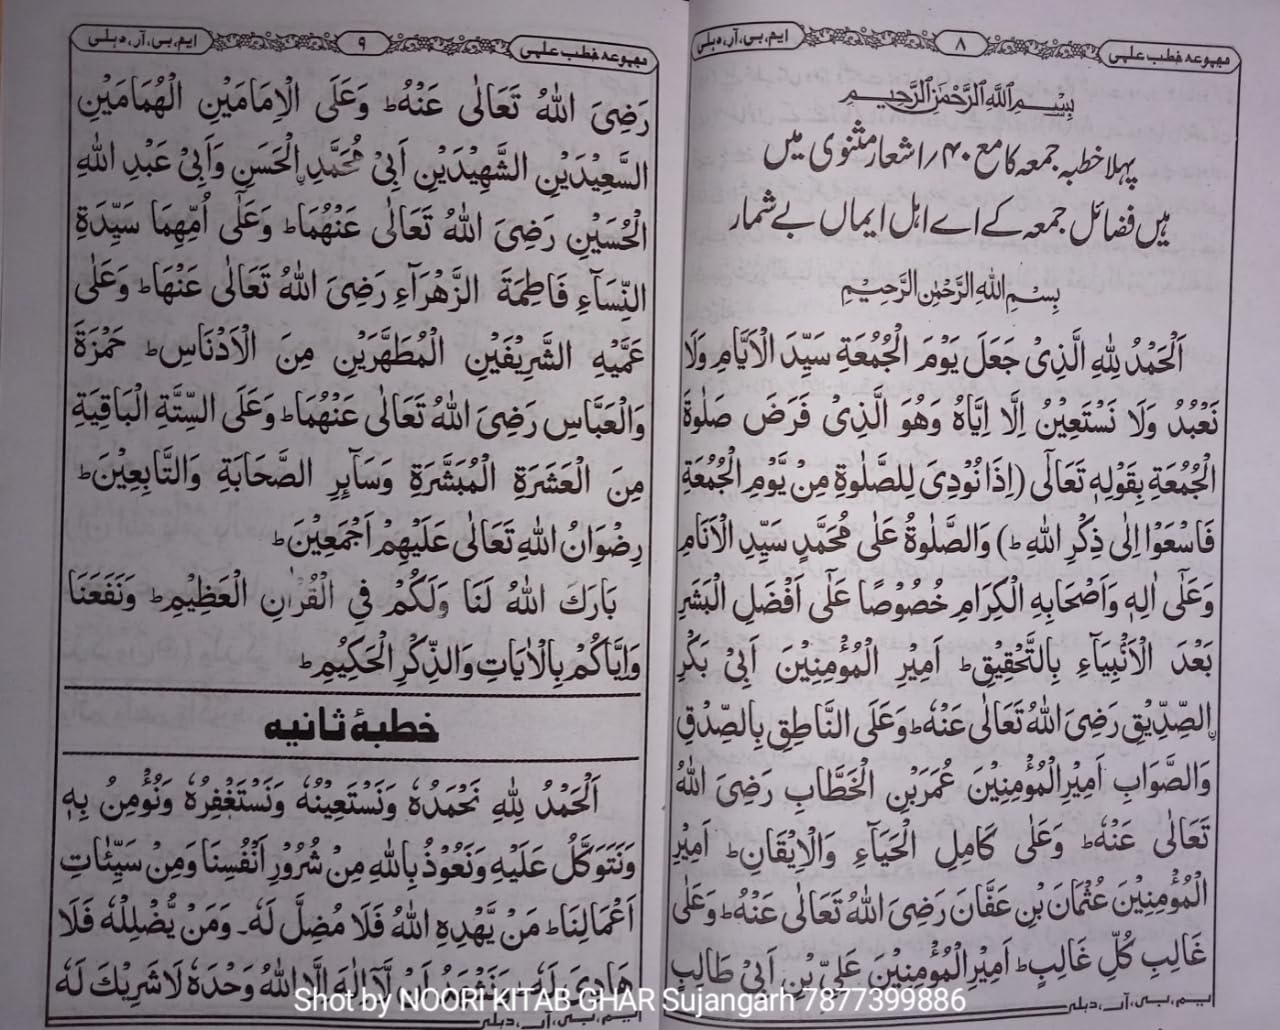 مجموعہ خطب علمی
۸
ایم،بی،آر،دہلی
بِسْمِ اللهِ الرَّحْمٰنِ الرَّحِيْمِ
پہلا خطبہ جمعہ کا مع ۴۰؍اشعار مثنوی میں
ہیں فضائل جمعہ کے اے اہل ایماں بے شمار
بِسْمِ اللهِ الرَّحْمٰنِ الرَّحِيْمِ
اَلْحَمْدُ لِلّٰهِ الَّذِىْ جَعَلَ يَوْمَ الْجُمُعَةِ سَيِّدَ الْاَيَّامِ وَلَا
نَعْبُدُ وَلَا نَسْتَعِيْنُ اِلَّا اِيَّاهُ وَهُوَ الَّذِىْ فَرَضَ صَلٰوةَ
الْجُمُعَةِ بِقَوْلِهٖ تَعَالٰى (اِذَا نُوْدِىَ لِلصَّلٰوةِ مِنْ يَّوْمِ الْجُمُعَةِ
فَاسْعَوْا اِلٰى ذِكْرِ اللهِ ط) وَالصَّلٰوةُ عَلٰى مُحَمَّدٍ سَيِّدِ الْاَنَامِ
وَعَلٰى اٰلِهٖ وَاَصْحَابِهِ الْكِرَامِ خُصُوْصًا عَلٰى اَفْضَلِ الْبَشَرِ
بَعْدَ الْاَنْۢبِيَآءِ بِالتَّحْقِيْقِ ط اَمِيْرِ الْمُؤْمِنِيْنَ اَبِىْ بَكْرِ
الصِّدِّيْقِ رَضِىَ اللهُ تَعَالٰى عَنْهُ ط وَعَلَى النَّاطِقِ بِالصِّدْقِ
وَالصَّوَابِ اَمِيْرِ الْمُؤْمِنِيْنَ عُمَرَ بْنِ الْخَطَّابِ رَضِىَ اللهُ
تَعَالٰى عَنْهُ ط وَعَلٰى كَامِلِ الْحَيَآءِ وَالْاِيْقَانِ ط اَمِيْرِ
الْمُؤْمِنِيْنَ عُثْمَانَ بْنِ عَفَّانَ رَضِىَ اللهُ تَعَالٰى عَنْهُ ط وَعَلٰى
غَالِبِ كُلِّ غَالِبٍ ط اَمِيْرِ الْمُؤْمِنِيْنَ عَلِىِّ بْنِ اَبِىْ طَالِبٍ
ایم،بی،آر،دہلی
مجموعہ خطب علمی
۹
ایم،بی،آر،دہلی
رَضِىَ اللهُ تَعَالٰى عَنْهُ ط وَعَلَى الْاِمَامَيْنِ الْهُمَامَيْنِ
السَّعِيْدَيْنِ الشَّهِيْدَيْنِ اَبِىْ مُحَمَّدِ نِ الْحَسَنِ وَاَبِىْ عَبْدِ اللهِ
الْحُسَيْنِ رَضِىَ اللهُ تَعَالٰى عَنْهُمَا ط وَعَلٰى اُمِّهِمَا سَيِّدَةِ
النِّسَآءِ فَاطِمَةَ الزَّهْرَآءِ رَضِىَ اللهُ تَعَالٰى عَنْهَا ط وَعَلٰى
عَمَّيْهِ الشَّرِيْفَيْنِ الْمُطَهَّرَيْنِ مِنَ الْاَدْنَاسِ ط حَمْزَةَ
وَالْعَبَّاسِ رَضِىَ اللهُ تَعَالٰى عَنْهُمَا ط وَعَلَى السِّتَّةِ الْبَاقِيَةِ
مِنَ الْعَشَرَةِ الْمُبَشَّرَةِ وَسَآئِرِ الصَّحَابَةِ وَالتَّابِعِيْنَ ط
رِضْوَانُ اللهِ تَعَالٰى عَلَيْهِمْ اَجْمَعِيْنَ ط
بَارَكَ اللهُ لَنَا وَلَكُمْ فِى الْقُرْاٰنِ الْعَظِيْمِ ط وَنَفَعَنَا
وَاِيَّاكُمْ بِالْاٰيَاتِ وَالذِّكْرِ الْحَكِيْمِ ط
خطبۂ ثانیہ
اَلْحَمْدُ لِلّٰهِ نَحْمَدُهٗ وَنَسْتَعِيْنُهٗ وَنَسْتَغْفِرُهٗ وَنُؤْمِنُ بِهٖ
وَنَتَوَكَّلُ عَلَيْهِ وَنَعُوْذُ بِاللهِ مِنْ شُرُوْرِ اَنْفُسِنَا وَمِنْ سَيِّئٰاتِ
اَعْمَالِنَا ط مَنْ يَّهْدِهِ اللهُ فَلَا مُضِلَّ لَهٗ۔ وَمَنْ يُّضْلِلْهُ فَلَا
هَادِىَ لَهٗ وَنَشْهَدُ اَنْ لَّآ اِلٰهَ اِلَّا اللهُ وَحْدَهٗ لَا شَرِيْكَ لَهٗ
ایم،بی،آر،دہلی
Shot by NOORI KITAB GHAR Sujangarh 7877399886